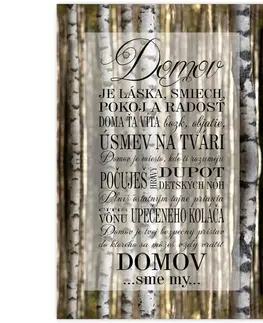 Domov
JE LÁSKA, SMIECH,
POKOJ A RADOSŤ
DOMA ŤA VÍTA bozk, objatie,
ÚSMEV NA TVÁRI
Domov je miesto, kde ti rozumejú
POČUJEŠ HRAVÝ DUPOT
DETSKÝCH NÔH
ostatným tajne priania
CÍTIŠ VÔŇU UPEČENÉHO KOLÁČA
Domov je tvoj bezpečný prístav
do ktorého sa môžeš vždy vrátiť
DOMOV
...sme my...